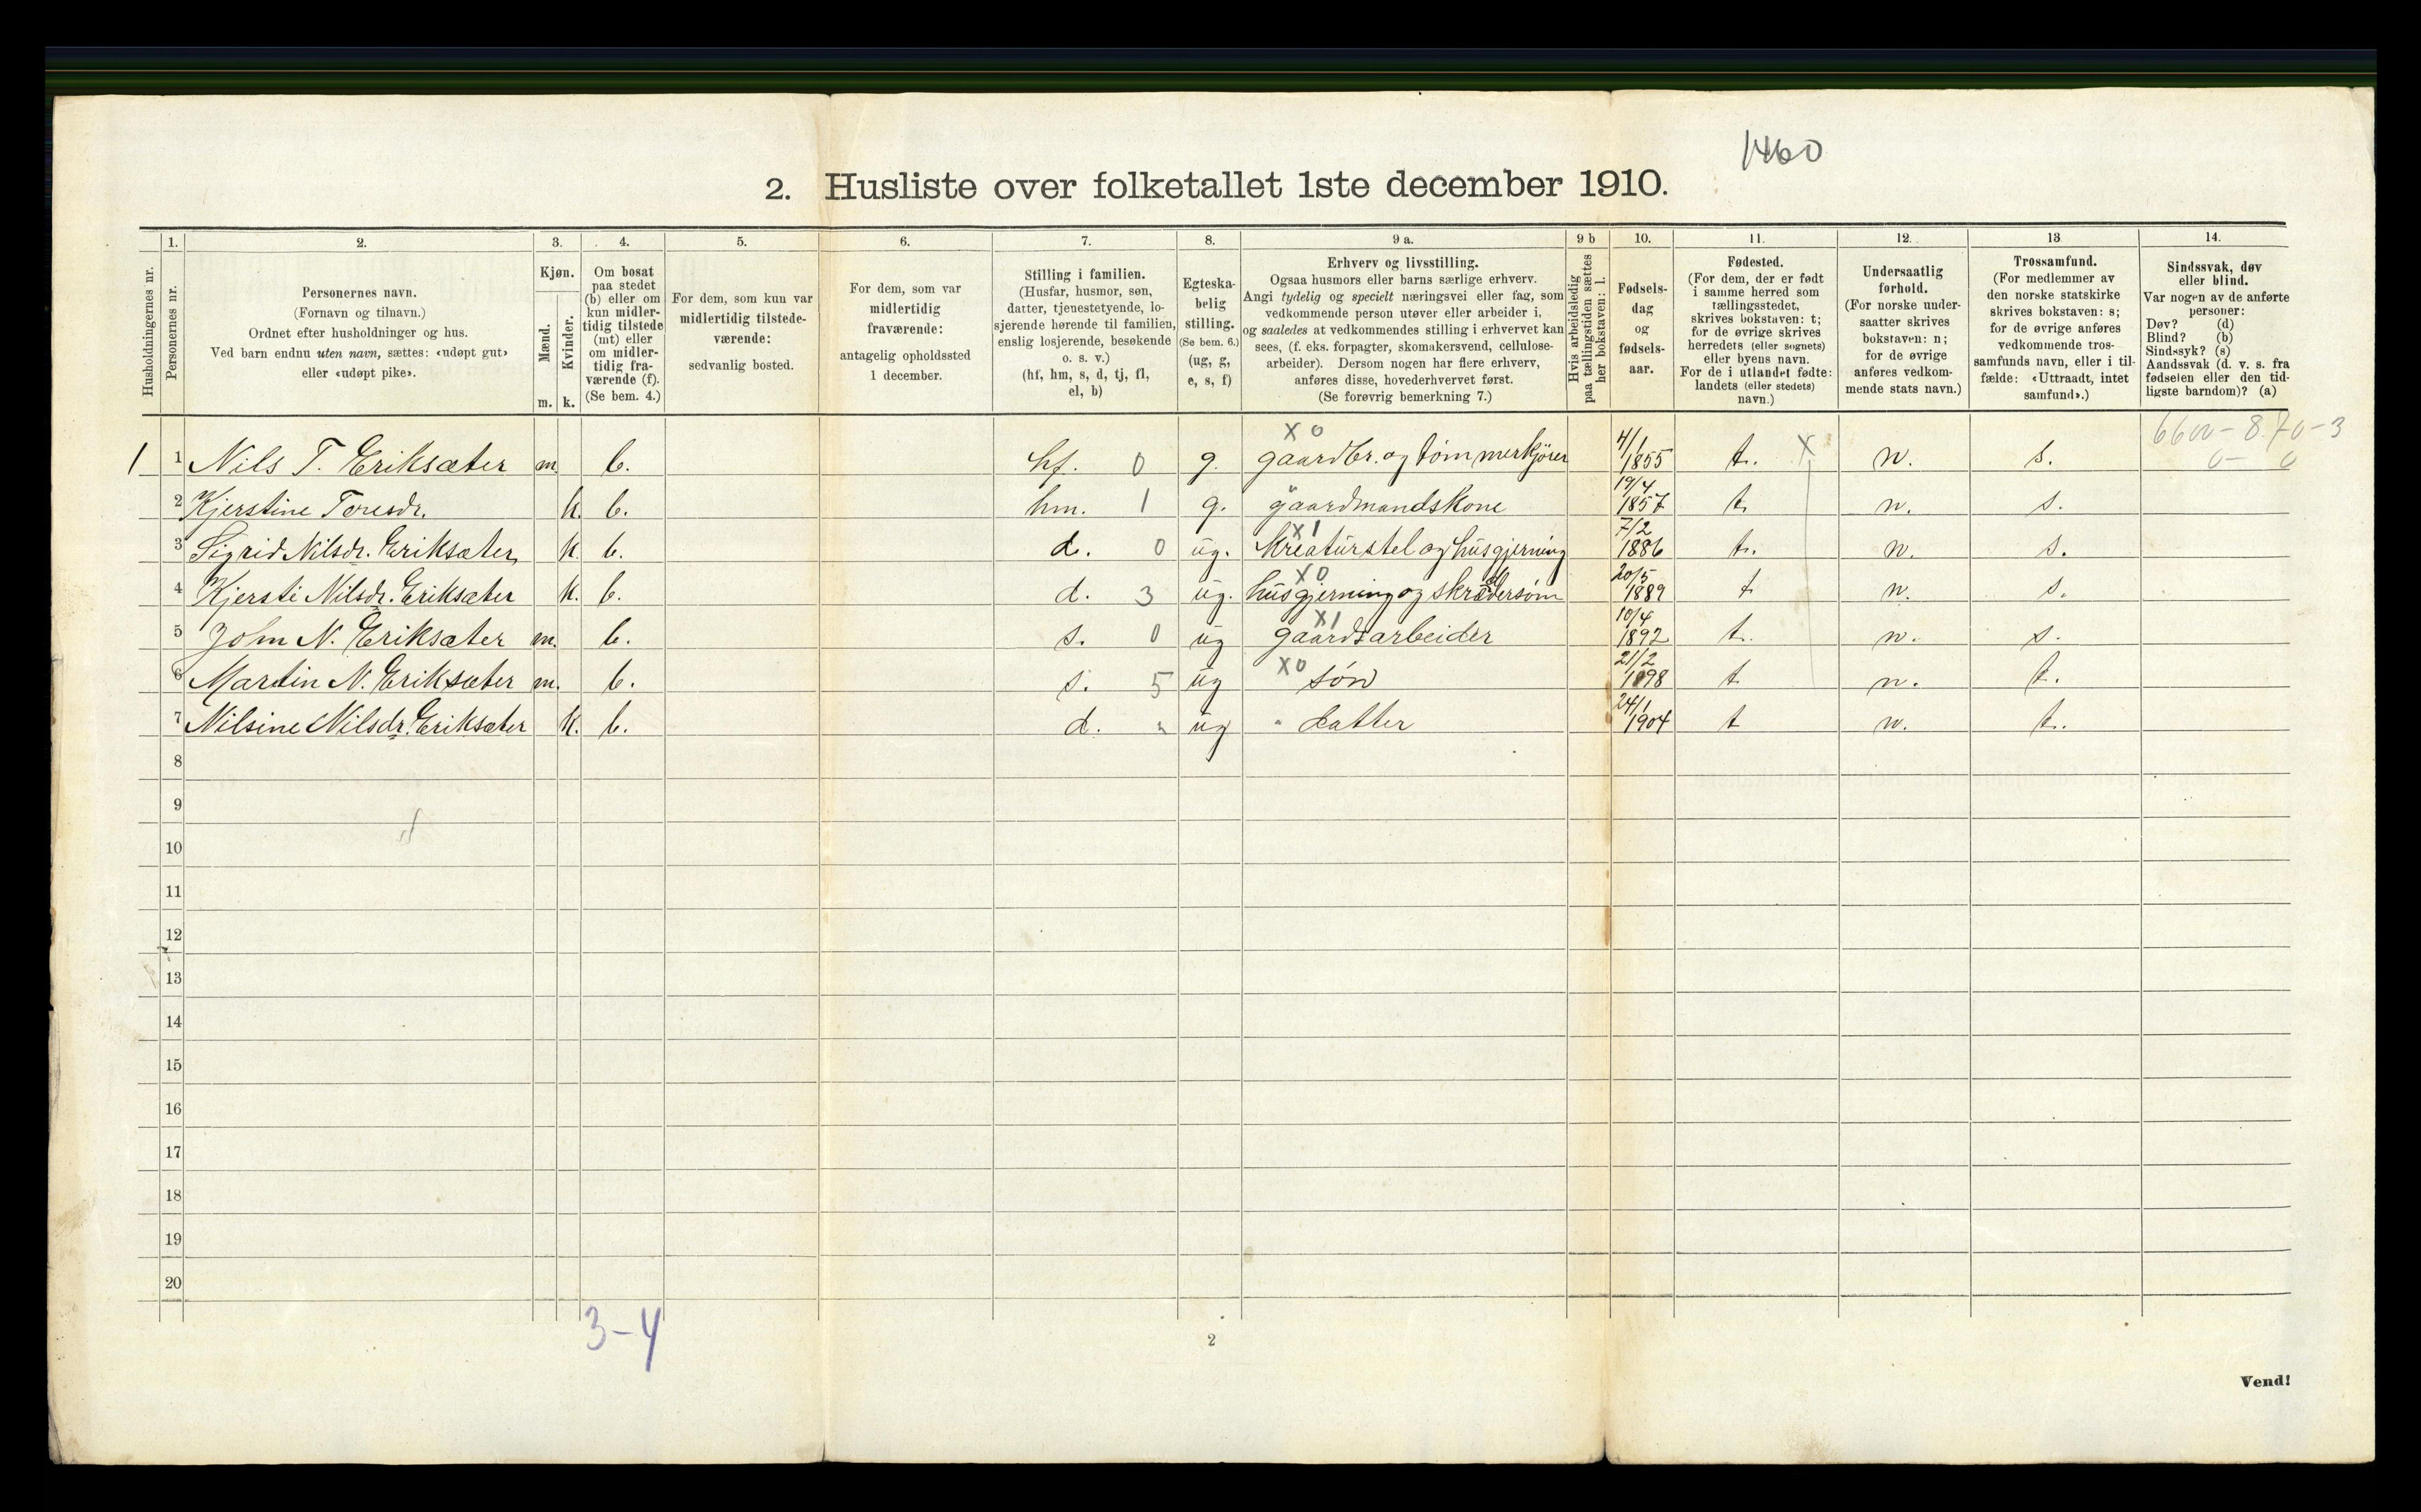 1460
2. Husliste over folketallet 1ste december 1910.
1. 2. 3. 4. 5. 6. 7. 8. 9 a. 9 b 10. 11. 12. 13 14.
Husholdningernes nr.
Personernes nr.
Personernes navn.
(Fornavn og tilnavn.)
Ordnet efter husholdninger og hus.
Ved barn endnu uten navn, sættes: «udøpt gut»
eller «udøpt pike».
Kjøn.
Mænd.
Kvinder.
m. k.
Om bosat
paa stedet
(b) eller om
kun midler-
tidig tilstede
(mt) eller
om midler-
tidig fra-
værende (f).
(Se bem. 4.)
For dem, som kun var
midlertidig tilstede-
værende:
sedvanlig bosted.
For dem, som var
midlertidig
fraværende:
antagelig opholdssted
1 december.
Stilling i familien.
(Husfar, husmor, søn,
datter, tjenestetyende, lo-
sjerende hørende til familien,
enslig losjerende, besøkende
o. s. v.)
(hf, hm, s, d, tj, fl,
el, b)
Egteska-
belig
stilling.
(Se bem. 6.)
(ug, g,
e, s, f)
Erhverv og livsstilling.
Ogsaa husmors eller barns særlige erhverv.
Angi tydelig og specielt næringsvei eller fag, som
vedkommende person utøver eller arbeider i,
og saaledes at vedkommendes stilling i erhvervet kan
sees, (f. eks. forpagter, skomakersvend, cellulose-
arbeider). Dersom nogen har flere erhverv,
anføres disse, hovederhvervet først.
(Se forøvrig bemerkning 7.)
Hvis arbeidsledig
paa tællingstiden sættes
her bokstaven: l.
Fødsels-
dag
og
fødsels-
aar.
Fødested.
(For dem, der er født
i samme herred som
tællingsstedet,
skrives bokstaven: t;
for de øvrige skrives
herredets (eller sognets)
eller byens navn.
For de i utlandet fødte:
landets (eller stedets)
navn.)
Undersaatlig
forhold.
(For norske under-
saatter skrives
bokstaven: n;
for de øvrige
anføres vedkom-
mende stats navn.)
Trossamfund.
(For medlemmer av
den norske statskirke
skrives bokstaven: s;
for de øvrige anføres
vedkommende tros-
samfunds navn, eller i til-
fælde: «Uttraadt, intet
samfund».)
Sindssvak, døv
eller blind.
Var nogen av de anførte
personer:
Døv? (d)
Blind? (b)
Sindssyk? (s)
Aandssvak (d. v. s. fra
fødselen eller den tid-
ligste barndom)? (a)
X 0 4/1 X 6600-8.70-3
1 1 Nils T. Eriksæter m. b. hf. 0 g. gaardbr. og tømmerkjører 1855 t. n. s. 0- 0
19/4
2 Kjerstine Toresdr. k. b. hm. 1 g. gaardmandskone 1857 t. n. s.
X 1 7/2
3 Sigrid Nilsdr. Eriksæter k. b. d. 0 ug. Kreaturstel og husgjerning 1886 t. n. s.
X 0 20/5
4 Kjersti Nilsdr. Eriksæter k. b. d. 3 ug. husgjerning og skrædersøm 1889 t n. s.
X 1 10/4
5 John N. Eriksæter m. b. s. 0 ug gaardsarbeider 1892 t. n. s.
X 0 21/2
6 Martin N. Eriksæter m. b. s. 5 ug søn 1898 t n. t.
24/1
7 Nilsine Nilsdr. Eriksæter k. b. d. " ug " datter 1904 t n. t.
8
9
10
11
12
13
14
15
16
17
18
19
20
3-4
2
Vend!